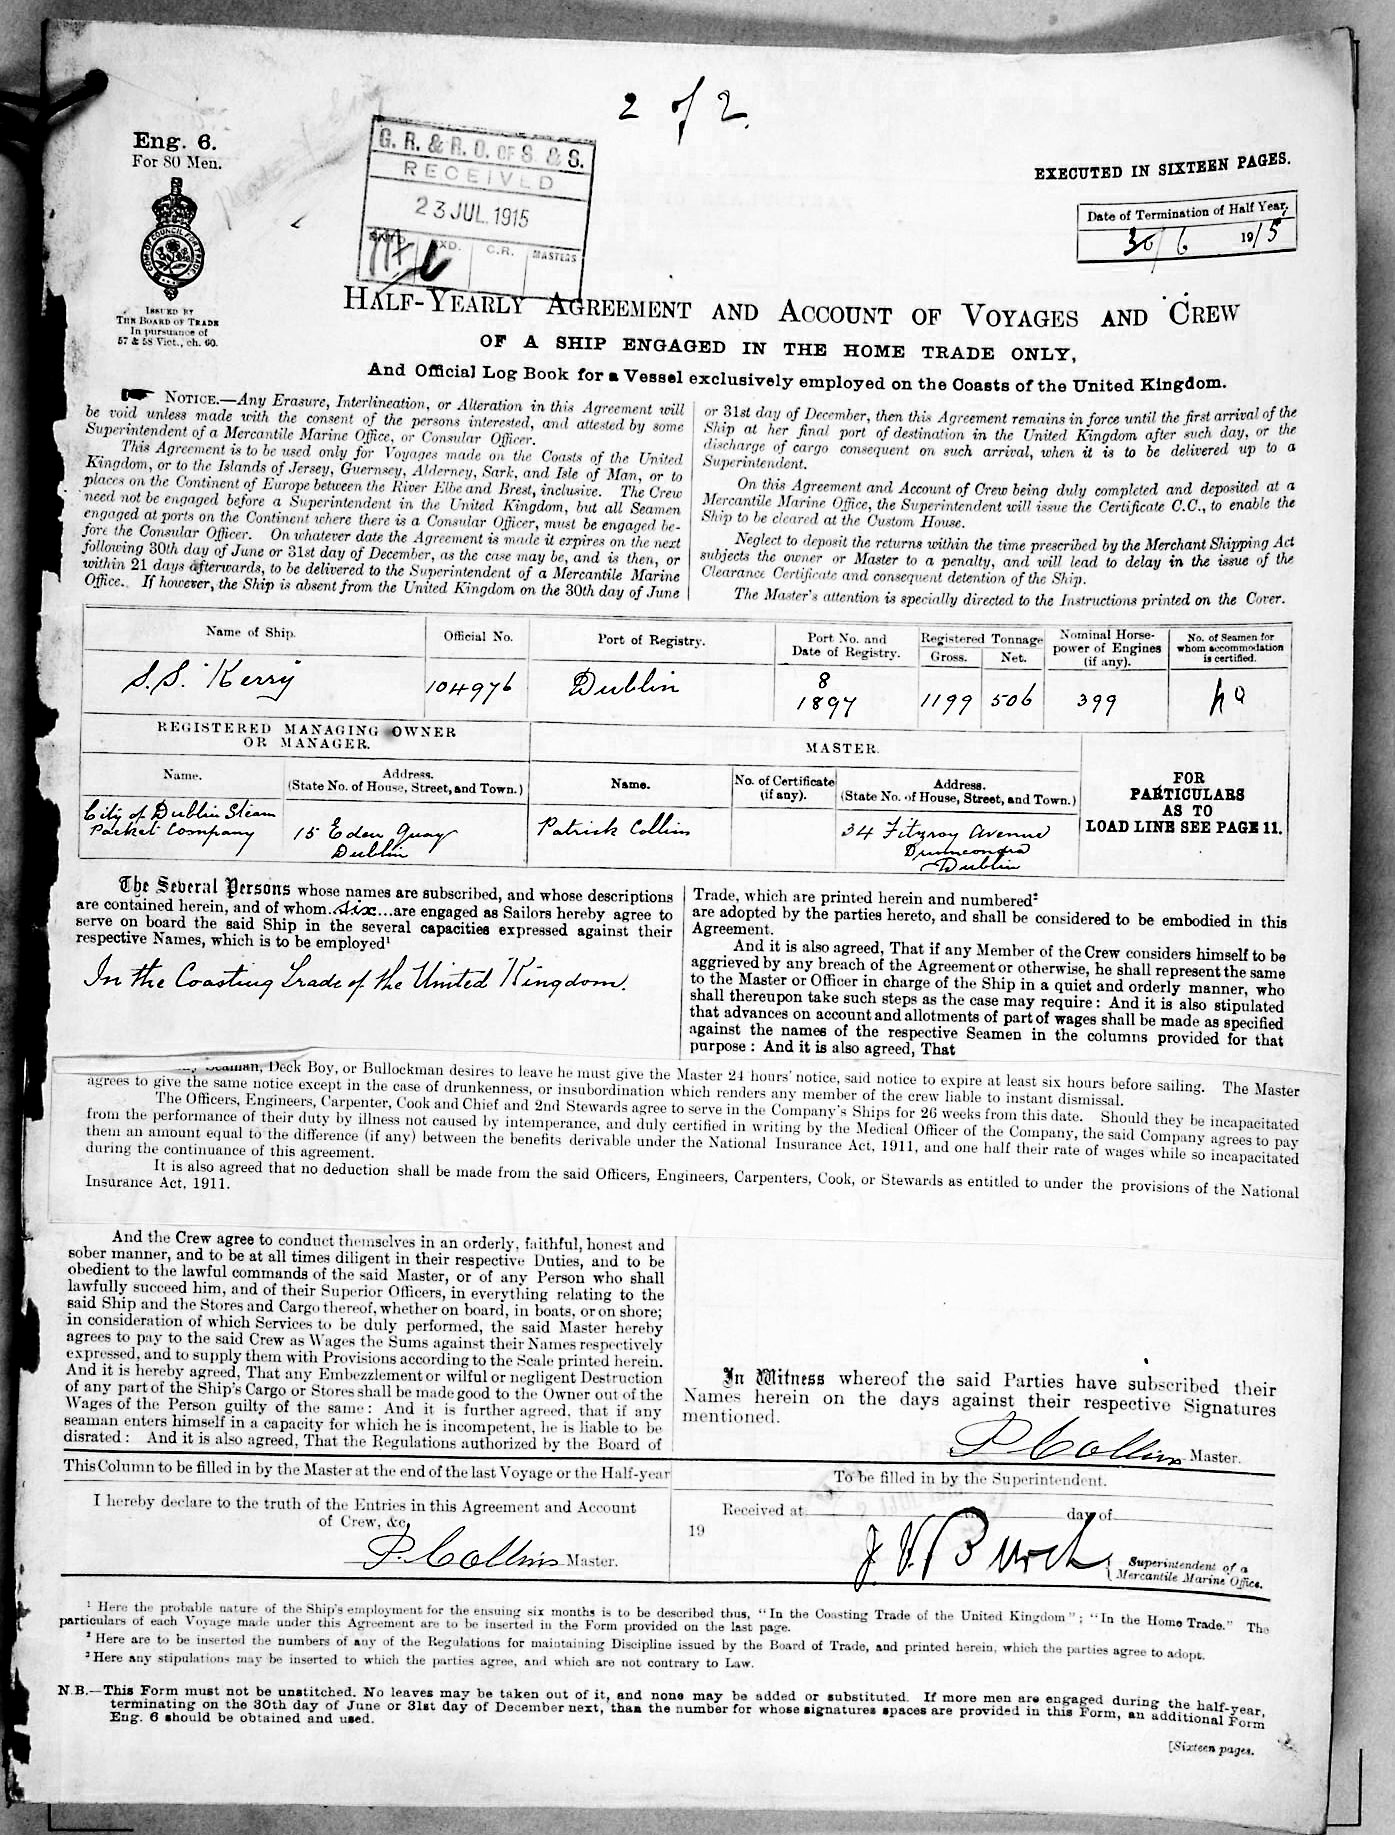 2 of 2.
Eng. 6.
For 80 Men.
G. R. & R. O. OF S. & S.
RECEIVED
23 JUL. 1915
EXD. C.R. MASTERS
EXECUTED IN SIXTEEN PAGES.
Date of Termination of Half Year,
30/6 1915
COM. OF COUNCIL FOR TRADE
ISSUED BY
THE BOARD OF TRADE
In pursuance of
57 & 58 Vict., ch. 60.
HALF-YEARLY AGREEMENT AND ACCOUNT OF VOYAGES AND CREW
OF A SHIP ENGAGED IN THE HOME TRADE ONLY,
And Official Log Book for a Vessel exclusively employed on the Coasts of the United Kingdom.
NOTICE.—Any Erasure, Interlineation, or Alteration in this Agreement will
be void unless made with the consent of the persons interested, and attested by some
Superintendent of a Mercantile Marine Office, or Consular Officer.
This Agreement is to be used only for Voyages made on the Coasts of the United
Kingdom, or to the Islands of Jersey, Guernsey, Alderney, Sark, and Isle of Man, or to
places on the Continent of Europe between the River Elbe and Brest, inclusive. The Crew
need not be engaged before a Superintendent in the United Kingdom, but all Seamen
engaged at ports on the Continent where there is a Consular Officer, must be engaged be-
fore the Consular Officer. On whatever date the Agreement is made it expires on the next
following 30th day of June or 31st day of December, as the case may be, and is then, or
within 21 days afterwards, to be delivered to the Superintendent of a Mercantile Marine
Office. If however, the Ship is absent from the United Kingdom on the 30th day of June
or 31st day of December, then this Agreement remains in force until the first arrival of the
Ship at her final port of destination in the United Kingdom after such day, or the
discharge of cargo consequent on such arrival, when it is to be delivered up to a
Superintendent.
On this Agreement and Account of Crew being duly completed and deposited at a
Mercantile Marine Office, the Superintendent will issue the Certificate C.C., to enable the
Ship to be cleared at the Custom House.
Neglect to deposit the returns within the time prescribed by the Merchant Shipping Act
subjects the owner or Master to a penalty, and will lead to delay in the issue of the
Clearance Certificate and consequent detention of the Ship.
The Master's attention is specially directed to the Instructions printed on the Cover.
Name of Ship. Official No. Port of Registry. Port No. and Date of Registry. Registered Tonnage Gross. Net. Nominal Horse-power of Engines (if any). No. of Seamen for whom accommodation is certified.
S.S. "Kerry" 104976 Dublin 8 1897 1199 506 399
REGISTERED MANAGING OWNER
OR MANAGER.
MASTER.
Name. Address. (State No. of House, Street, and Town.) Name. No. of Certificate (if any). Address. (State No. of House, Street, and Town.)
City of Dublin Steam
Packet Company
15 Eden Quay
Dublin
Patrick Collins
34 Fitzroy Avenue
Drumcondra
Dublin
FOR
PARTICULARS
AS TO
LOAD LINE SEE PAGE 11.
The Several Persons whose names are subscribed, and whose descriptions
are contained herein, and of whom six are engaged as Sailors hereby agree to
serve on board the said Ship in the several capacities expressed against their
respective Names, which is to be employed¹
In the Coasting Trade of the United Kingdom.
Trade, which are printed herein and numbered²
are adopted by the parties hereto, and shall be considered to be embodied in this
Agreement.
And it is also agreed, That if any Member of the Crew considers himself to be
aggrieved by any breach of the Agreement or otherwise, he shall represent the same
to the Master or Officer in charge of the Ship in a quiet and orderly manner, who
shall thereupon take such steps as the case may require: And it is also stipulated
that advances on account and allotments of part of wages shall be made as specified
against the names of the respective Seamen in the columns provided for that
purpose: And it is also agreed, That
Seaman, Deck Boy, or Bullockman desires to leave he must give the Master 24 hours' notice, said notice to expire at least six hours before sailing. The Master
agrees to give the same notice except in the case of drunkenness, or insubordination which renders any member of the crew liable to instant dismissal.
The Officers, Engineers, Carpenter, Cook and Chief and 2nd Stewards agree to serve in the Company's Ships for 26 weeks from this date. Should they be incapacitated
from the performance of their duty by illness not caused by intemperance, and duly certified in writing by the Medical Officer of the Company, the said Company agrees to pay
them an amount equal to the difference (if any) between the benefits derivable under the National Insurance Act, 1911, and one half their rate of wages while so incapacitated
during the continuance of this agreement.
It is also agreed that no deduction shall be made from the said Officers, Engineers, Carpenters, Cook, or Stewards as entitled to under the provisions of the National
Insurance Act, 1911.
And the Crew agree to conduct themselves in an orderly, faithful, honest and
sober manner, and to be at all times diligent in their respective Duties, and to be
obedient to the lawful commands of the said Master, or of any Person who shall
lawfully succeed him, and of their Superior Officers, in everything relating to the
said Ship and the Stores and Cargo thereof, whether on board, in boats, or on shore;
in consideration of which Services to be duly performed, the said Master hereby
agrees to pay to the said Crew as Wages the Sums against their Names respectively
expressed, and to supply them with Provisions according to the Scale printed herein.
And it is hereby agreed, That any Embezzlement or wilful or negligent Destruction
of any part of the Ship's Cargo or Stores shall be made good to the Owner out of the
Wages of the Person guilty of the same: And it is further agreed, that if any
seaman enters himself in a capacity for which he is incompetent, he is liable to be
disrated: And it is also agreed, That the Regulations authorized by the Board of
In Witness whereof the said Parties have subscribed their
Names herein on the days against their respective Signatures
mentioned.
P Collins Master.
This Column to be filled in by the Master at the end of the last Voyage or the Half-year
I hereby declare to the truth of the Entries in this Agreement and Account
of Crew, &c.
P. Collins Master.
To be filled in by the Superintendent.
Received at day of
19
Superintendent of a
Mercantile Marine Office.
¹ Here the probable nature of the Ship's employment for the ensuing six months is to be described thus, "In the Coasting Trade of the United Kingdom"; "In the Home Trade." The
particulars of each Voyage made under this Agreement are to be inserted in the Form provided on the last page.
² Here are to be inserted the numbers of any of the Regulations for maintaining Discipline issued by the Board of Trade, and printed herein, which the parties agree to adopt.
³ Here any stipulations may be inserted to which the parties agree, and which are not contrary to Law.
N.B.—This Form must not be unstitched. No leaves may be taken out of it, and none may be added or substituted. If more men are engaged during the half-year,
terminating on the 30th day of June or 31st day of December next, than the number for whose signatures spaces are provided in this Form, an additional Form
Eng. 6 should be obtained and used.
[Sixteen pages.